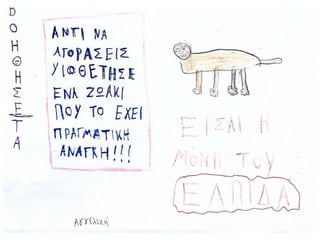 ΒΟΗΘΗΣΕ ΤΑ
ΑΝΤΙ ΝΑ
ΑΓΟΡΑΣΕΙΣ
ΥΙΟΘΕΤΗΣΕ
ΕΝΑ ΖΩΑΚΙ
ΠΟΥ ΤΟ ΕΧΕΙ
ΠΡΑΓΜΑΤΙΚΗ
ΑΝΑΓΚΗ!!!
ΕΙΣΑΙ Η
ΜΟΝΗ ΤΟΥ
ΕΛΠΙΔΑ
Αγγελική